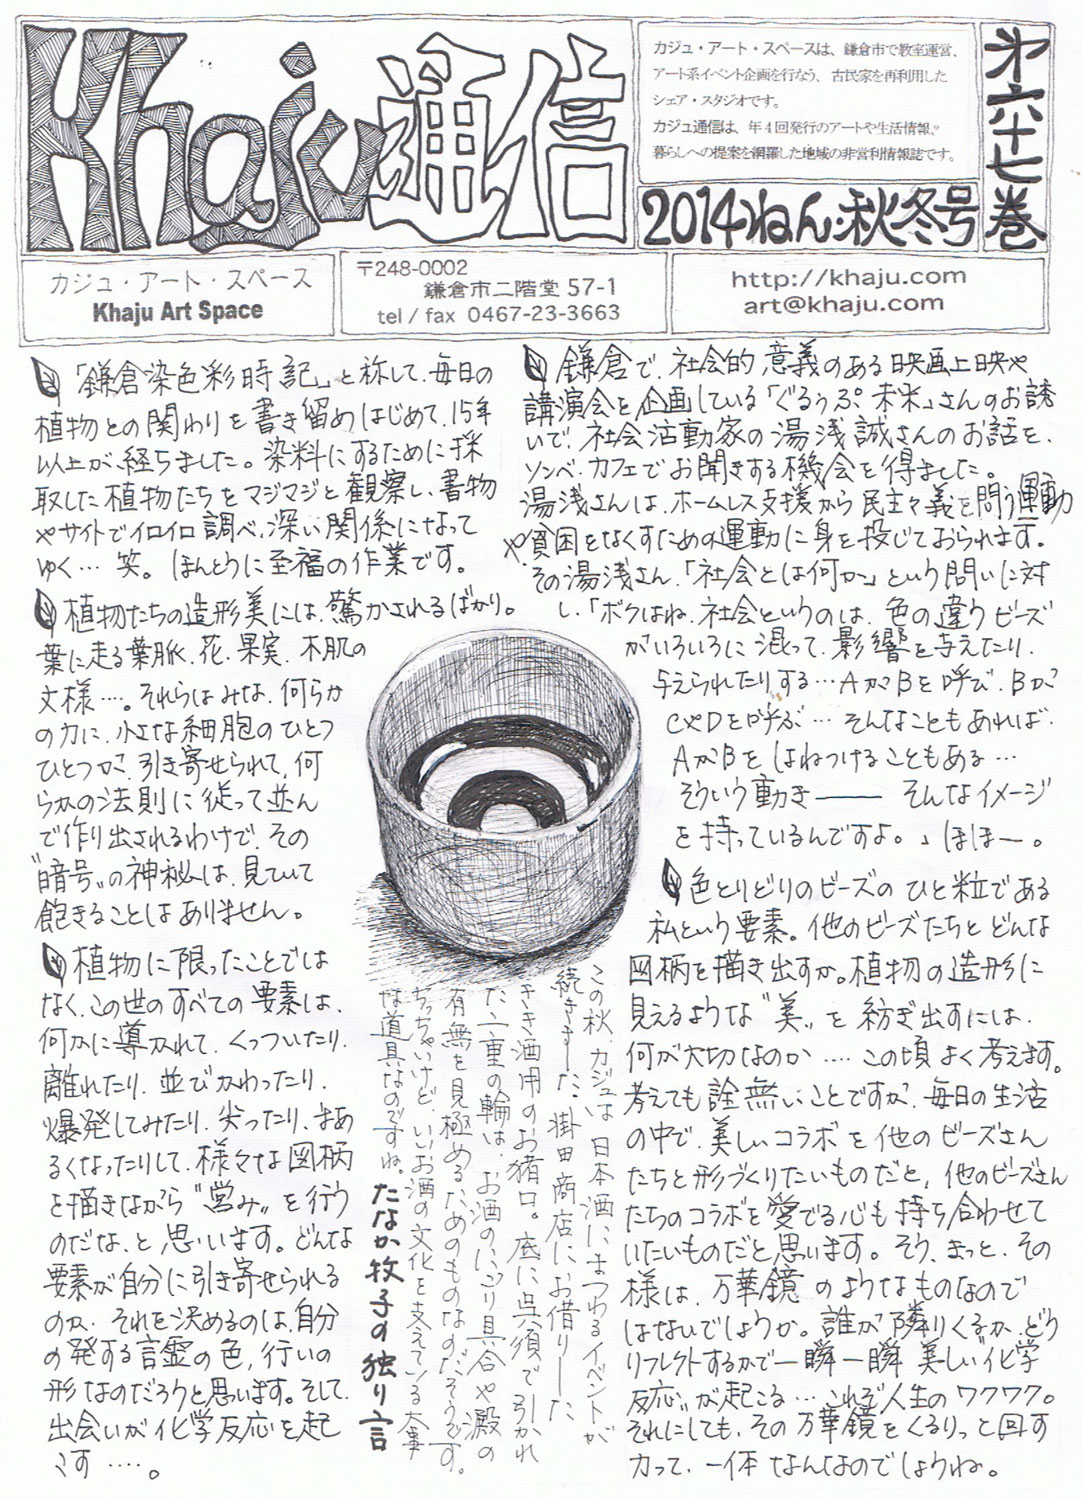 Khaju通信
カジュ・アート・スペースは、鎌倉市で教室運営、
アート系イベント企画を行なう、古民家を再利用した
シェア・スタジオです。
カジュ通信は、年4回発行のアートや生活情報。
暮らしへの提案を網羅した地域の非営利情報誌です。
第六十七巻
2014ねん・秋冬号
カジュ・アート・スペース
Khaju Art Space
〒248-0002
鎌倉市二階堂 57-1
tel / fax 0467-23-3663
http://khaju.com
art@khaju.com
「鎌倉染色彩時記」と称して、毎日の
植物との関わりを書き留めはじめて、15年
以上が、経ちました。染料にするために採
取した植物たちをマジマジと観察し、書物
やサイトでイロイロ調べ、深い関係になって
ゆく… 笑。ほんとうに至福の作業です。
植物たちの造形美には、驚かされるばかり。
葉に走る葉脈、花、果実、木肌の
文様‥‥。それらはみな、何らか
の力に、小さな細胞のひとつ
ひとつが、引き寄せられて、何
らかの法則に従って並ん
で作り出されるわけで、その
“暗号”の神秘は、見ていて
飽きることはありません。
植物に限ったことでは
なく、この世のすべての要素は、
何かに導かれて、くっついたり、
離れたり、並びかわったり、
爆発してみたり、尖ったり、まあ
るくなったりして、様々な図柄
を描きながら“営み”を行う
のだな、と思います。どんな
要素が自分に引き寄せられる
のか、それを決めるのは、自分
の発する言霊の色、行いの
形なのだろうと思います。そして、
出会いが化学反応を起
こす‥‥。
鎌倉で、社会的意義のある映画上映や
講演会を企画している「ぐるうぷ未米」さんのお誘
いで、社会活動家の湯浅誠さんのお話を、
ソンベ・カフェでお聞きする機会を得ました。
湯浅さんは、ホームレス支援から民主々義を問う運動
や貧困をなくすための運動に身を投じておられます。
その湯浅さん、「社会とは何か」という問いに対
し、「ボクはね、社会というのは、色の違うビーズ
がいろいろに混って、影響を与えたり、
与えられたりする…AがBを呼び、Bが
CやDを呼ぶ… そんなこともあれば、
AがBをはねつけることもある…
そういう動き―― そんなイメージ
を持っているんですよ。」ほほー。
色とりどりのビーズのひと粒である
私という要素。他のビーズたちとどんな
図柄を描き出すか。植物の造形に
見えるような“美”を紡ぎ出すには、
何が大切なのか‥‥この頃よく考えます。
考えても詮無いことですが、毎日の生活
の中で、美しいコラボを他のビーズさん
たちと形づくりたいものだと、他のビーズさん
たちのコラボを愛でる心も持ち合わせて
いたいものだと思います。そう、きっと、その
様は、万華鏡のようなものなので
はないでしょうか。誰が隣りくるか、どう
リフレクトするかで一瞬一瞬美しい“化学
反応”が起こる… これぞ人生のワクワク。
それにしても、その万華鏡をくるりっと回す
力って、一体なんなのでしょうね。
この秋、カジュは日本酒にまつわるイベントが
続きました。掛田商店にお借りした
きき酒用のお猪口。底に呉須で引かれ
た二重の輪は、お酒のにごり具合や澱の
有無を見極めるためのものなのだそうです。
ちっちゃいけど、いいお酒の文化を支えている大事
な道具なのですね。
たなか牧子の独り言